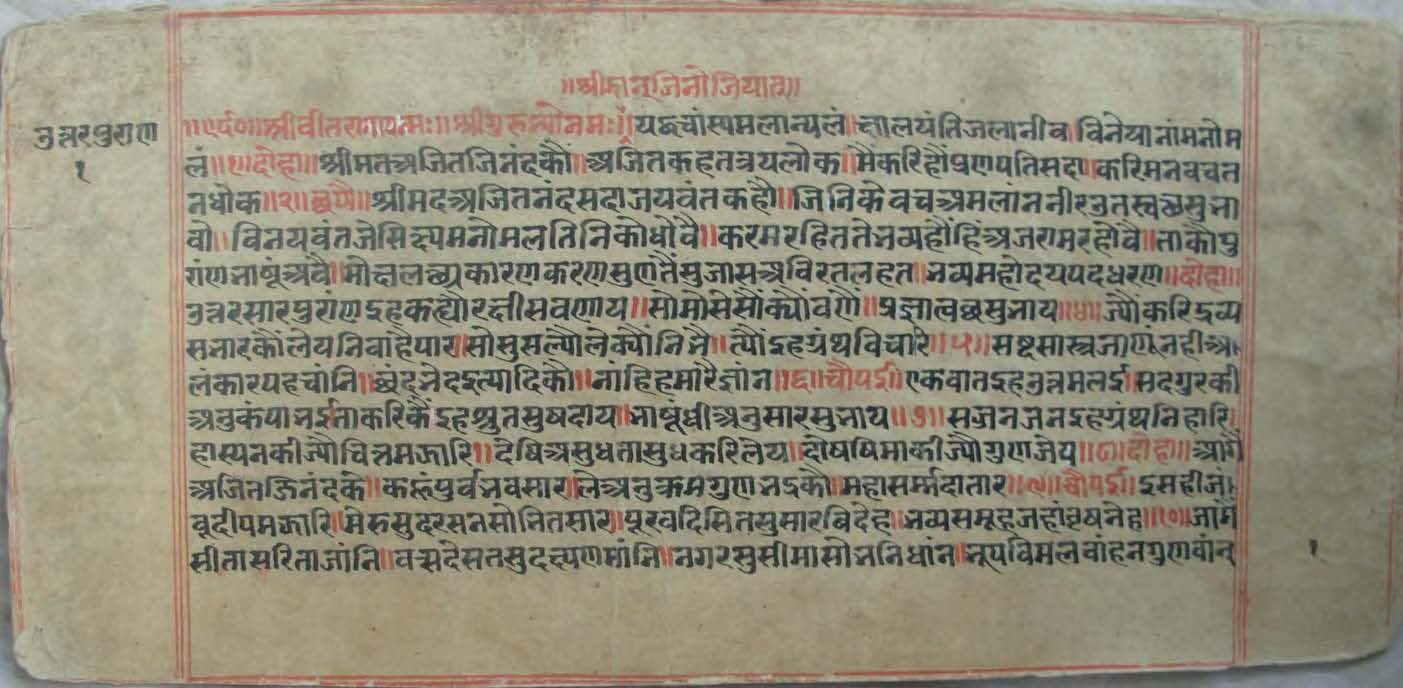 ॥श्रीमान् जिनो जियात्॥
उत्तरपुराण
१
॥श्रीवीतरागायनमः॥श्रीगुरुभ्योनमः॥यद्वचांस्यमलान्यलं॥क्षालयंतिजलानीव॥विनेयानांमनोम
लं॥१॥दोहा॥श्रीमतअजितजिनंदकौं॥अजितकहतत्रयलोक॥मैंकरिहौंप्रणपतिसदा॥करिमनवचत
नधोक॥२॥छप्पै॥श्रीमदअजितनंदसदाजयवंतकहौ॥जिनिकेवचअमलांननीरउतस्वछसुना
वो॥विनयवंतजे मनोमलतिनिकोधोवै॥करमरहिततेभव्यहौंहिंअजरामरहोवै॥ताकौपु
रांणभाषूंअवै॥मोक्षलछ्यकारणकरणसुणतैंसुजासअविरतलहत॥भव्यमहोदयपदधरण॥दोहा॥
उत्तरसारपुरांणइहकह्यो ॥सोमोसेसोक्योंवणैं॥ सुनाय॥४॥ज्यौंकरिद्रव्य
सभारकौंलेयनिवाहैपार॥सोसुसल्यौंलेक्यौंनिभै॥त्यौंइहग्रंथविचार॥५॥ नहीअ
लंकारपहचांनि॥छंदभेदइत्यादिकौ॥नांहिहमारैज्ञान॥६॥चौपई॥एकवातइहउत्तमलई॥सदगुरकी
अनुकंपाभई॥ताकरिकैंइहश्रुतसुषदाय॥भाषूंधीअनुसारसुभाय॥७॥सज्जनजनइहग्रंथनिहारि
हास्यनकीज्यौचित्तमझारि॥देषिअसुधतासुधकरिलेय॥दोषषिमाकीज्यौगुणजेय॥८॥दोहा॥आगैं
अजितजिनंदके॥कहूंपूर्वभवसार॥लेअनुक्रमगुणभद्रकौ॥महासर्म्मदातार॥९॥चौपई॥इमहीजं
बूदीपमझारि॥मेरुसुदरसनसोभितसार॥पूरवदिसितसुसारविदेह॥भव्यसमूहजहांवृषनेह॥१०॥जामैं
सीतासरिताजांनि॥वत्सदेसतसुदक्ष्यणमांनि॥नगरसुसीमासोभनिधांन॥भूपविमलवांहनगुणवांन्
१